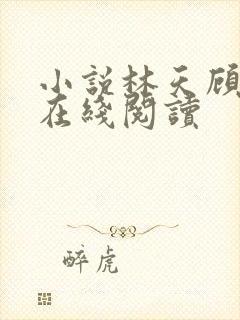 小說林天顧
在綫閱讀
醉虎